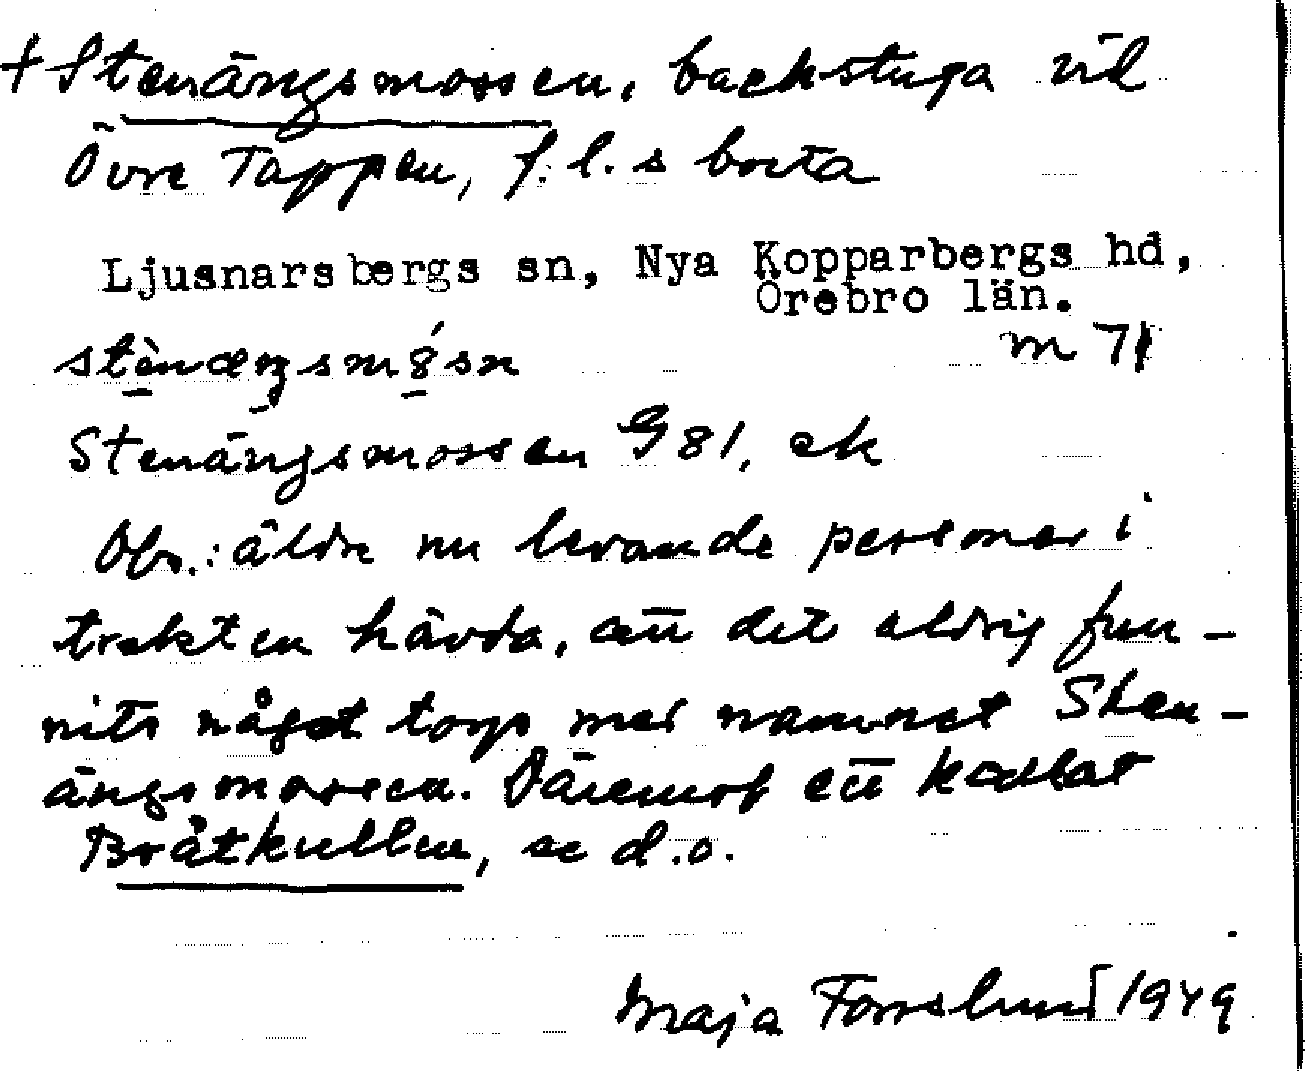 + Stenängsmossen, backstuga vid
Övre Tappen, f.l.s borta
Ljusnarsbergs sn, Nya Kopparbergs hd,
Örebro län.
m 71
Stenängsmossen G 81, ek
Obs.: äldre nu levande personer i
trakten hävda, att det aldrig fun-
nits något torp med namnet Sten-
ängsmossen. Däremot ett kallat
Bråtkullen, se d.o.
Maja Forslund 1949